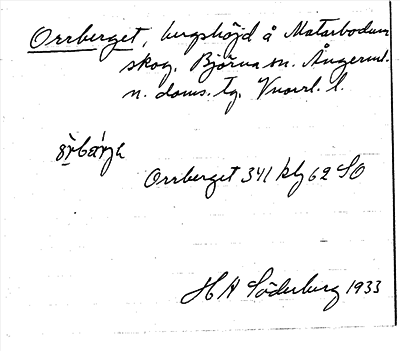 Orrberget, bergshöjd å Mattarbodum
skog. Björna sn. Ångerml.
n. doms. tg. Vnorrl. l.
Orrberget 341 kbl 62 SO
H A Söderberg 1933